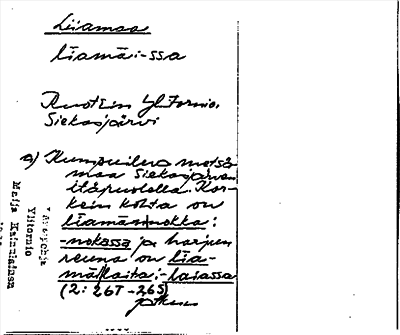 Liiamaa
liamä:-ssa
Ruotsin Yl.Tornio.
Siekasjärvi
a) Kumpuileva metsä
maa Siekasjärven
itäpuolella. Kor-
kein kohta on
liamännokka:
-nokassa ja harjun
reuna on lia-
mällaita:-laiassa
(2: 26T-26S)
jatkuu
Ylitornio
Meija Kainulainen